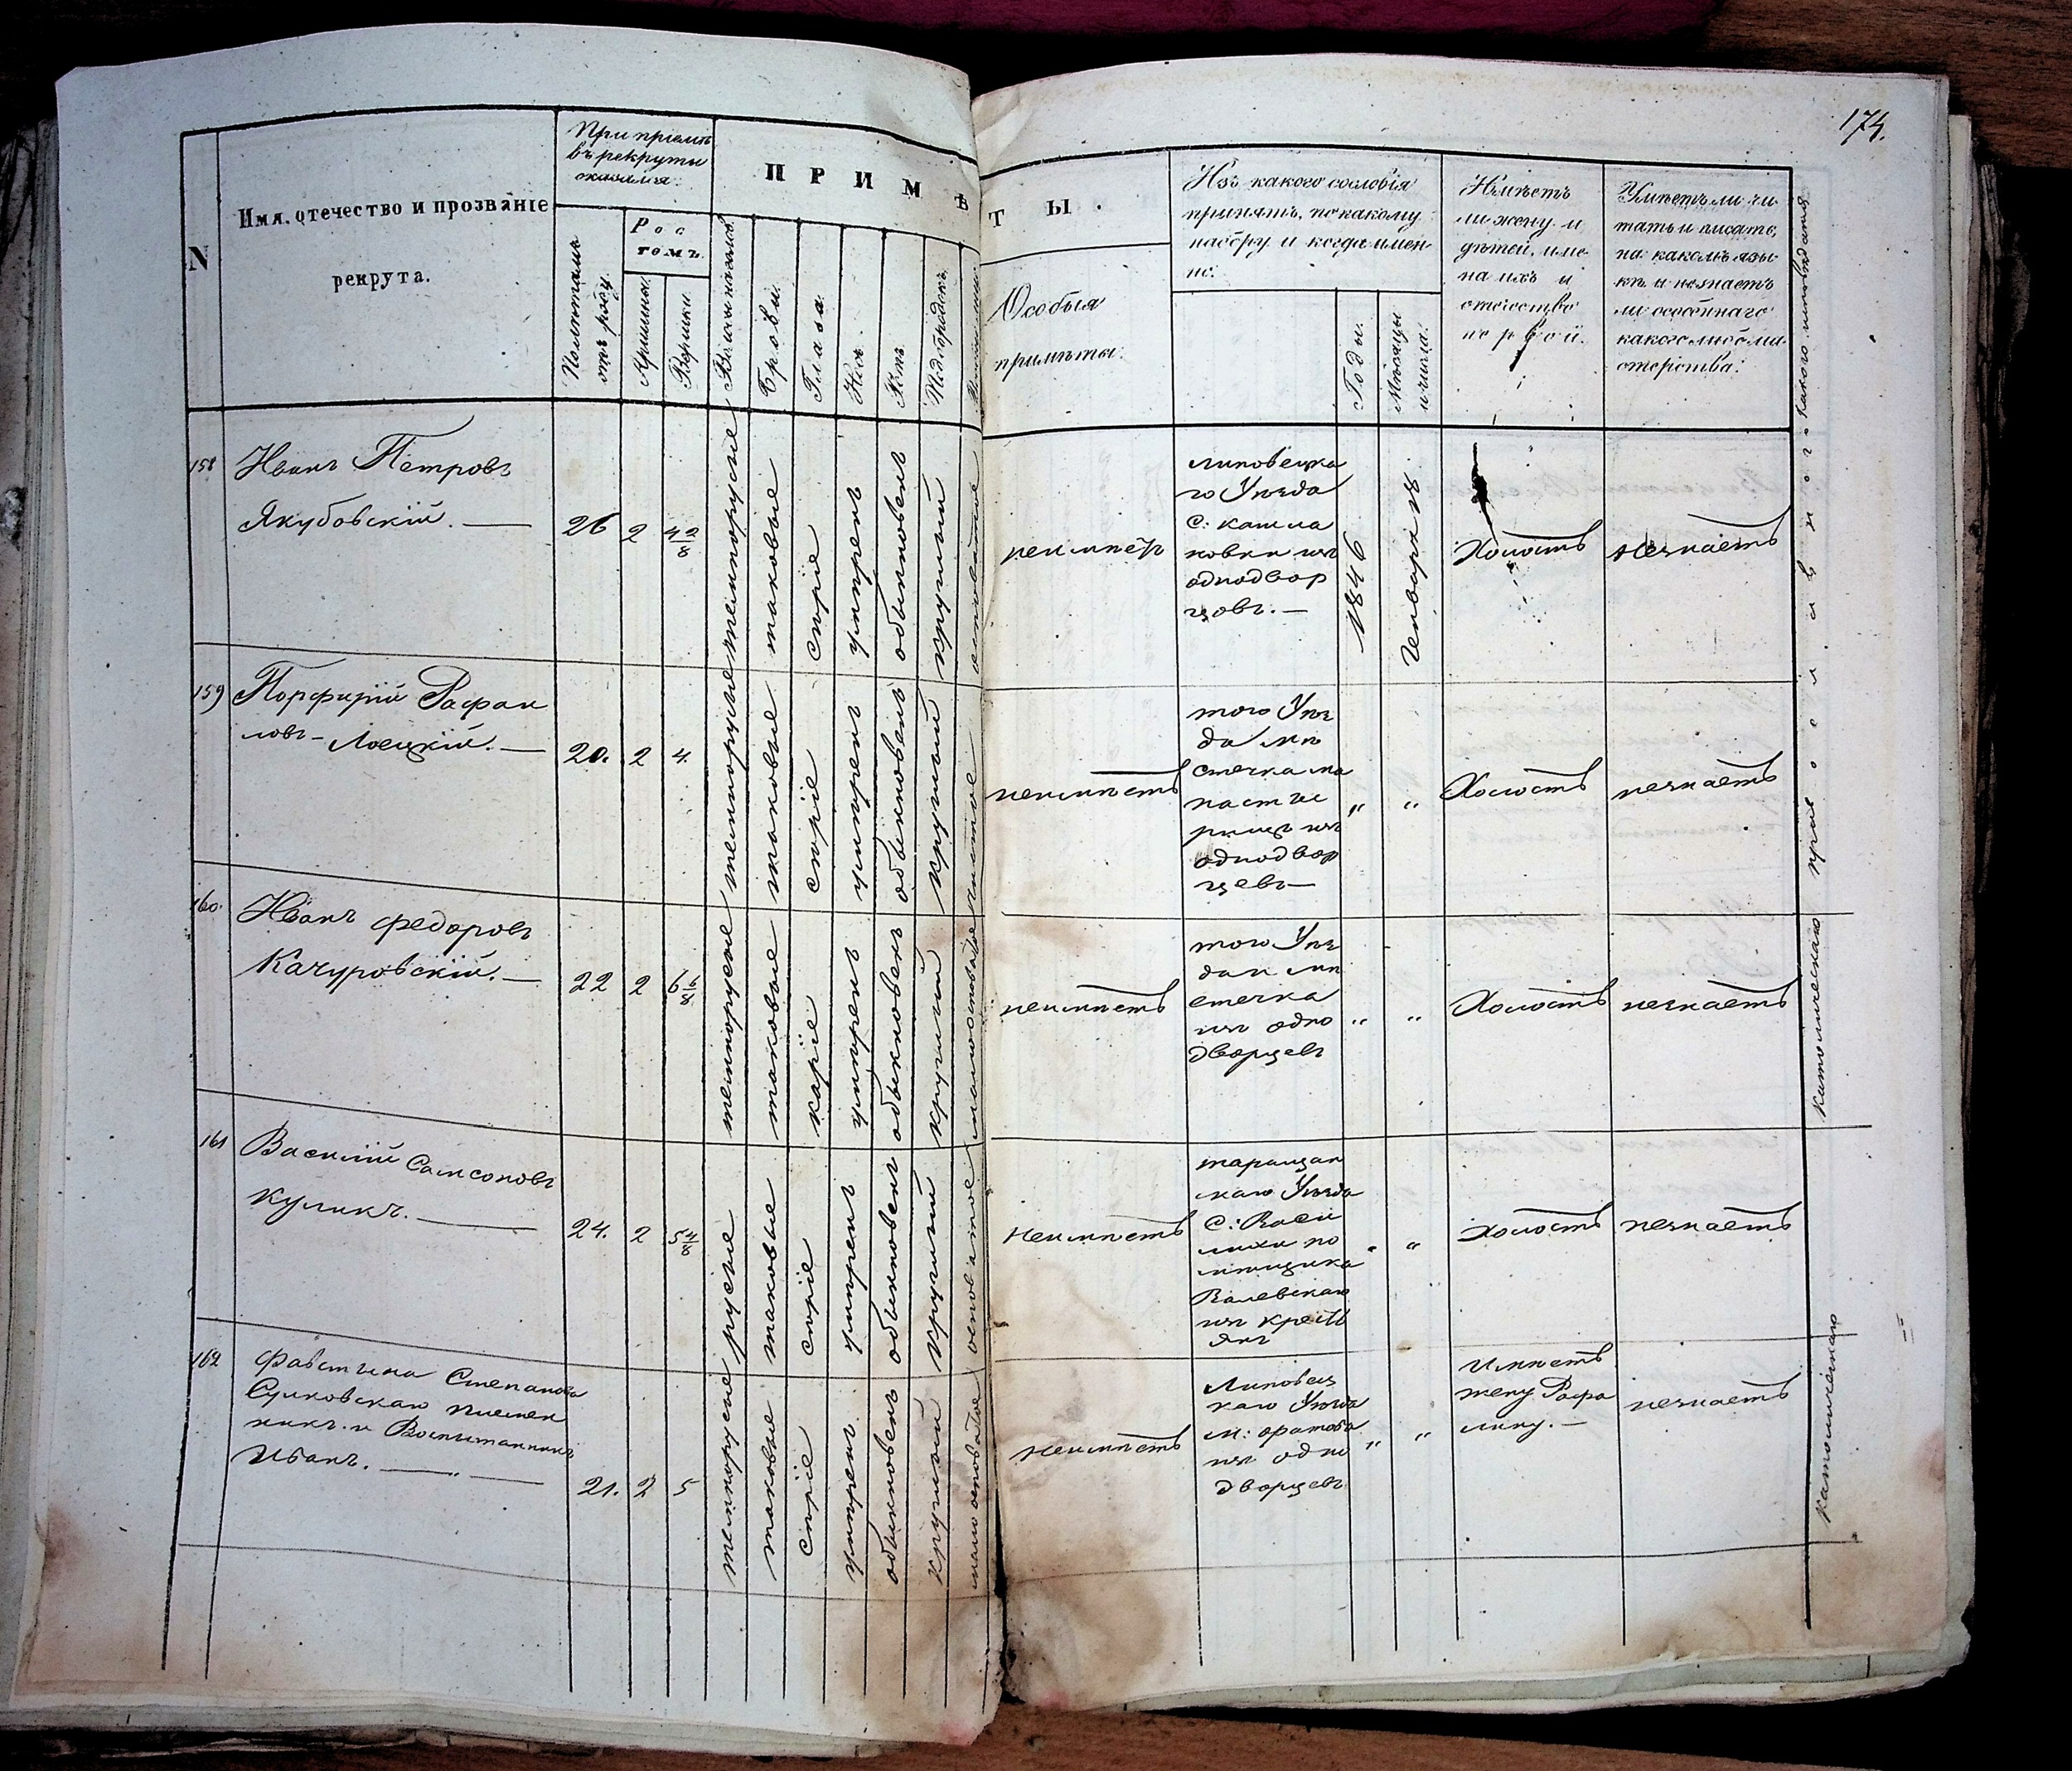 174.
N
Имя, отечество и прозваніе
рекрута.
При пріемѣ
въ рекруты
оказался:
Полѣтамъ
отъ роду
Рос
томъ.
Аршины.
Вершки.
П Р И М Ѣ Т Ы .
Брови.
Глаза.
Носъ.
Ротъ.
Подбородокъ.
Особыя
примѣты:
Изъ какого сословія
принятъ, по какому
набору и когда имен-
но:
Годы.
Мѣсяцы
и числа.
Имѣетъ
ли жену и
дѣтей, име-
на ихъ и
отчество
первой.
Умѣетъ ли чи-
тать и писать,
на какомъ язы-
кѣ и незнаетъ
ли особеннаго
какого либо ма-
стерства:
Какого исповѣданія
158
Иванъ Петровъ
Якубовскій. —
26
2
4 2/8
темнорусые
таковые
сѣріе
умѣренъ
обыкновенъ
круглый
неимѣетъ
липовецка
го Уѣзда
С: кашла
новки изъ
однодвор
цовъ. —
1846
Генваря 18
Холостъ
незнаетъ
православного
159
Порфирій Рафаи
ловъ - Лоецкій. —
20.
2
4.
темнорусые
таковые
сѣріе
умѣренъ
обыкновенъ
круглый
чистое
неимѣетъ
того Уѣз
да мѣ
стечка мо
настыр
рища изъ
однодвор
цевъ —
„
„
Холостъ
незнаетъ
160.
Иванъ Федоровъ
Качуровскій. —
22
2
6 6/8
темнорусые
таковые
каріе
умѣренъ
обыкновенъ
круглый
малосповатое
неимѣетъ
того Уѣз
да и мѣ
стечка
изъ одно
дворцевъ
„
„
Холостъ
незнаетъ
католическаго
161
Василій Самсоновъ
Куликъ. —
24.
2
5 4/8
русые
таковые
сѣріе
умѣренъ
обыкновенъ
круглый
неимѣетъ
таращан
скаго Уѣзда
С: Васи
лихи по
мѣщика
Залевскаго
изъ кресть
янъ
„
„
Холостъ
незнаетъ
162
Фавстина Степанова
Сулковскаго племен
никъ и Воспитанникъ
Иванъ. —
21.
2
5
темнорусые
таковые
сѣріе
умѣренъ
обыкновенъ
круглый
неимѣетъ
Липовец
каго Уѣзда
м: оратова
изъ одно
дворцевъ
„
„
Имѣетъ
жену Рафа
лину. —
незнаетъ
католическаго